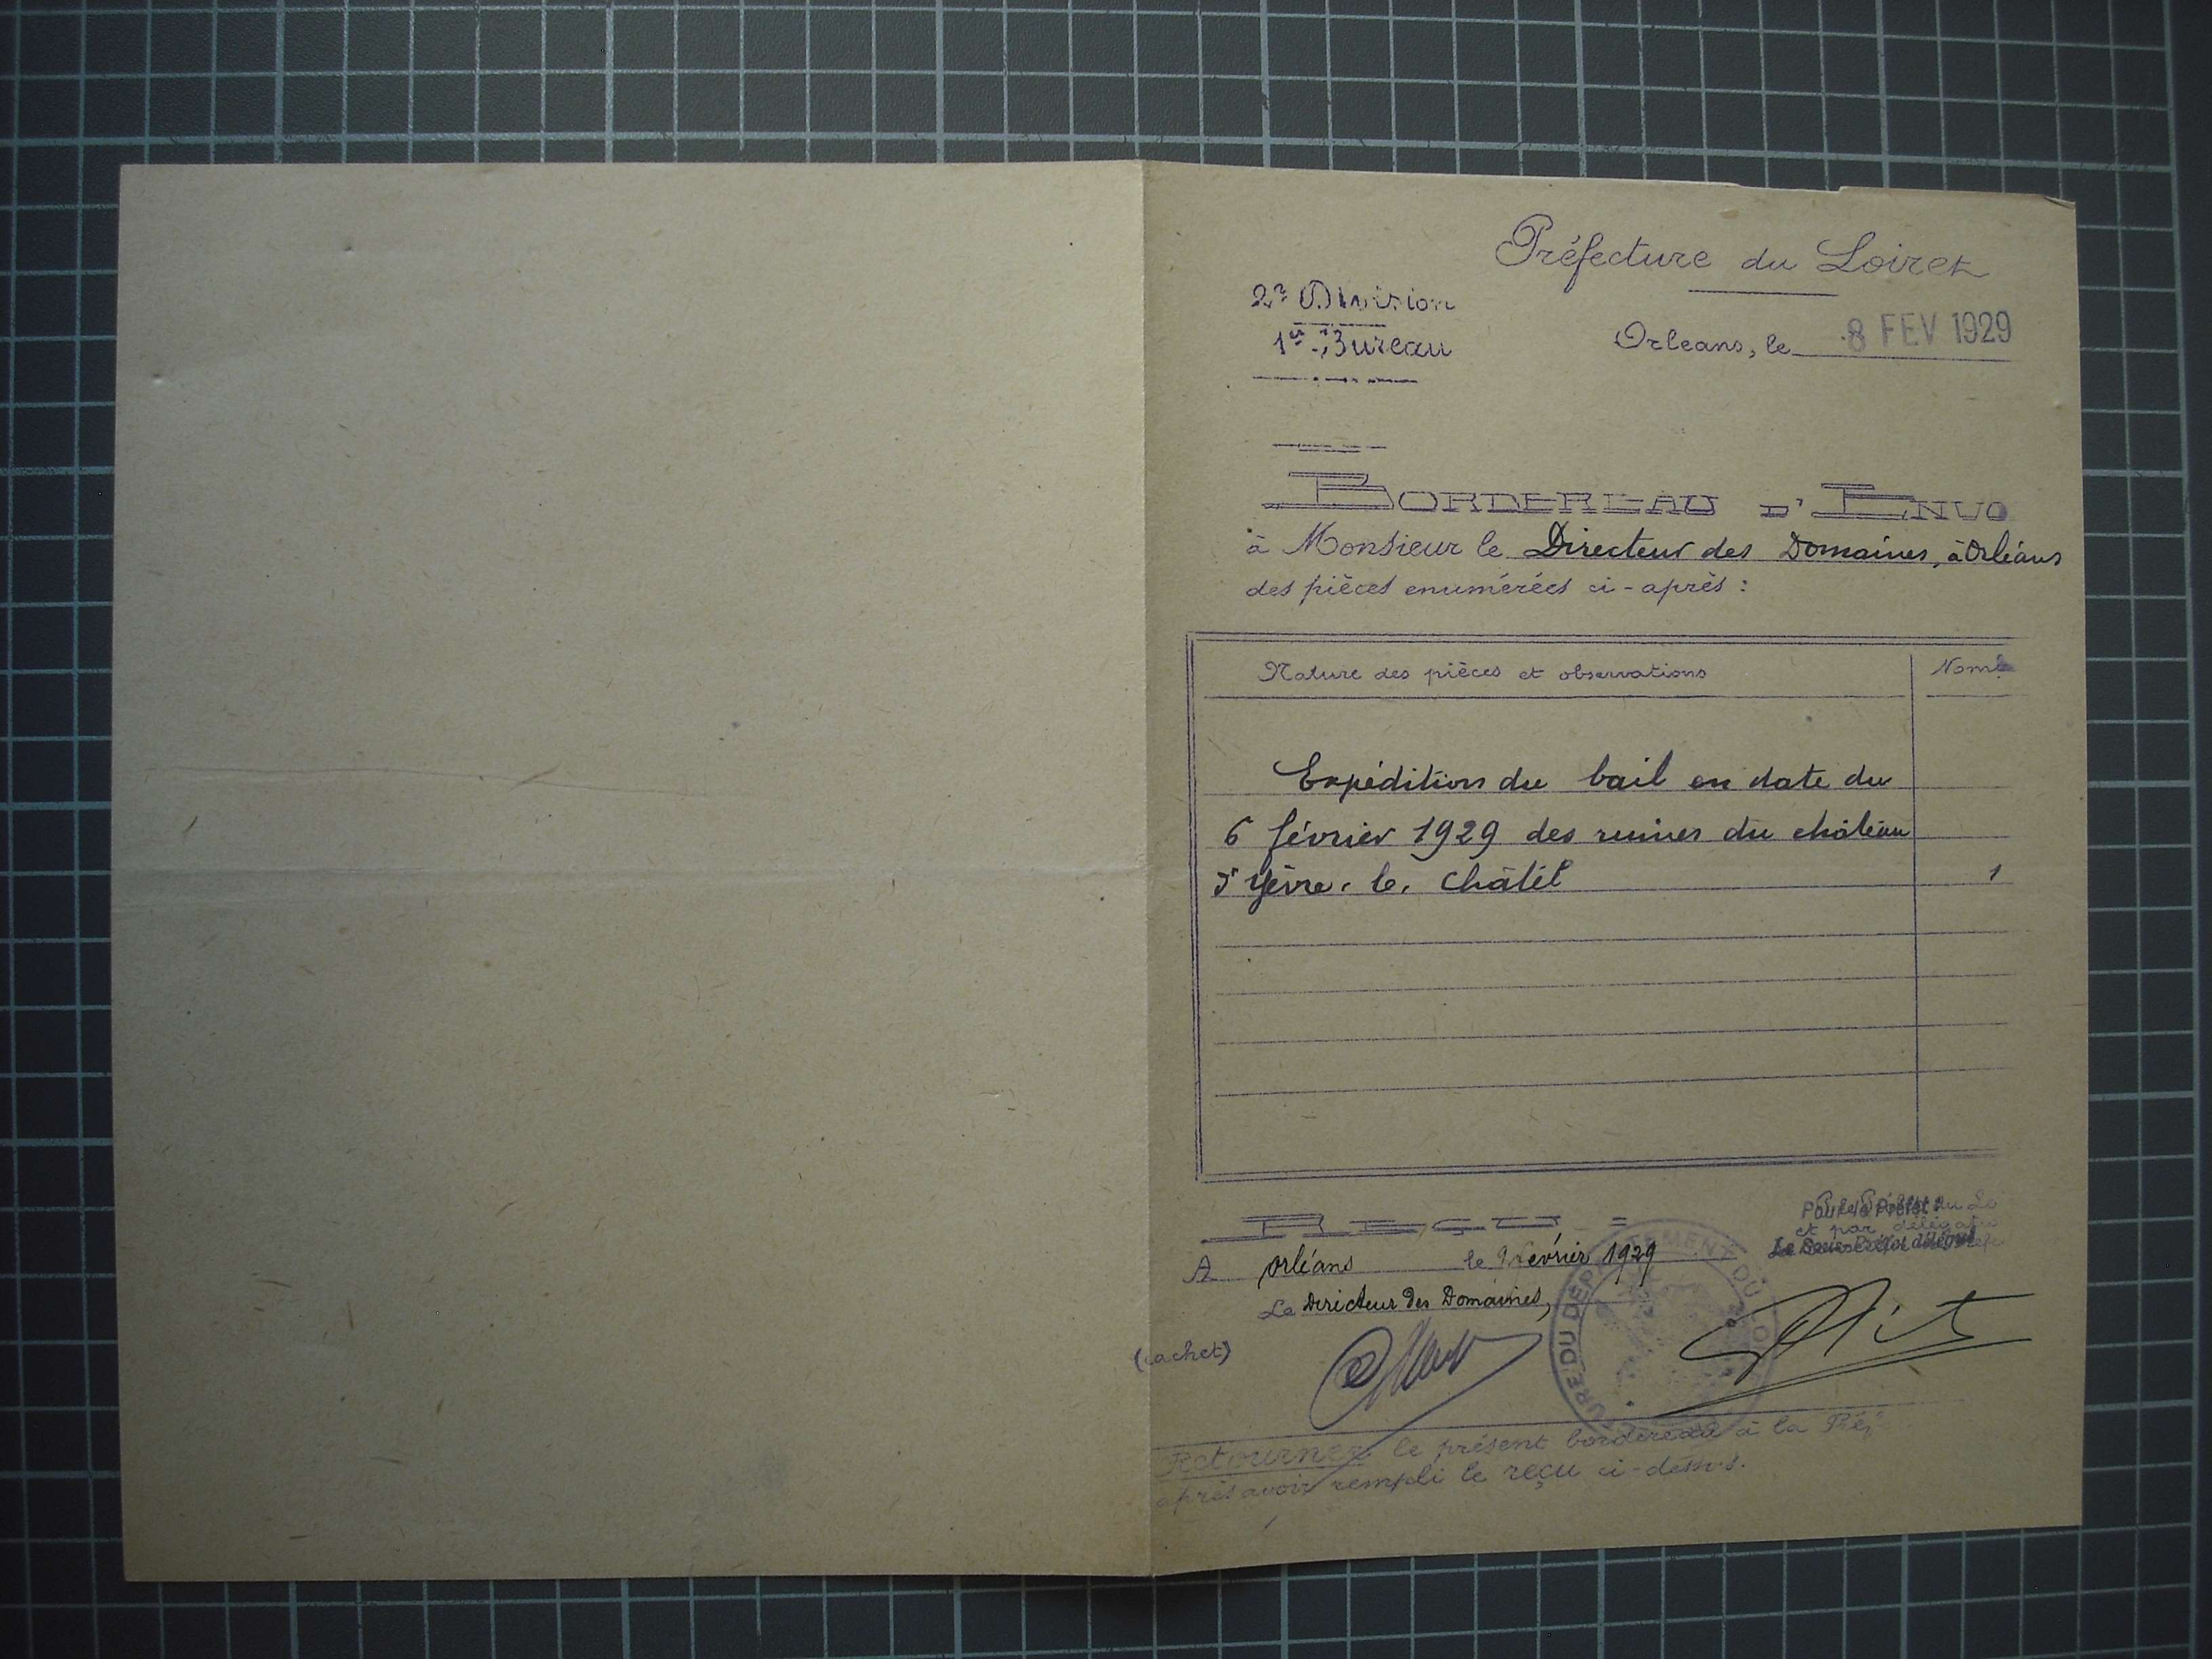 Préfecture du Loiret
2e Division
1er Bureau
Orleans, le 8 FEV 1929
BORDEREAU D'ENVO
à Monsieur le Directeur des Domaines, à Orléans
des pièces enumérées ci-après :
Nature des pièces et observations Nomb
Expédition du bail en date du
6 février 1929 des ruines du château
d'Yèvre. le. Châtel 1
REÇU
A Orléans le 9 février 1929
Le Directeur des Domaines,
(cachet)
Retourner le présent bordereau à la Préf
après avoir rempli le reçu ci-dessus.